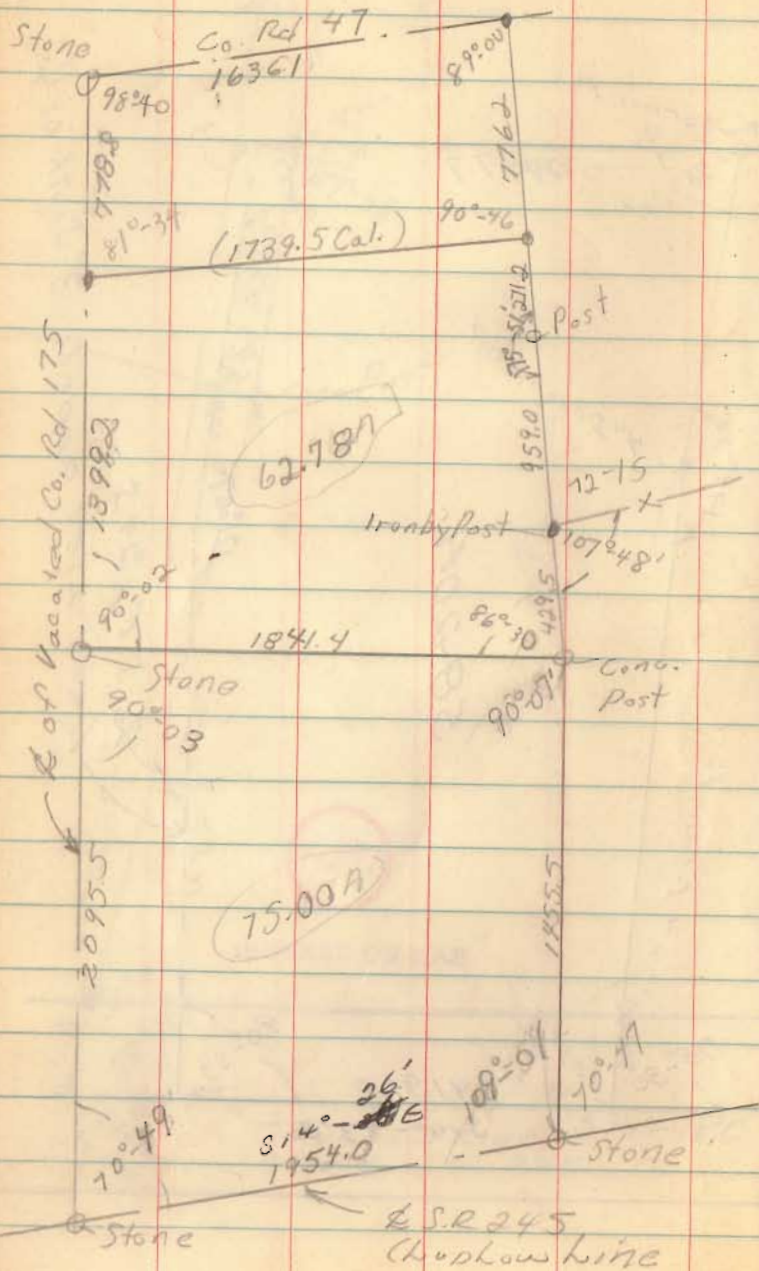 Stone
Co. Rd 47
1636.1
98°40
89°:00
778.8
776.2
81°-34
(1739.5 Cal.)
90°-46
Post
271.2
℄ of Vacated Co. Rd. 175
1398.2
62.78A
959.0
12-15
x
Iron by Post
107°48'
90°-02
429.5
1841.4
86°-30
Stone
Conc.
Post
90°-03
90°-07'
2095.5
75.00A
1455.5
109°-07
70°-47
70°-49'
26'
S14°- E
1954.0
Stone
Stone
℄ S.R 245
(Ludlow Line